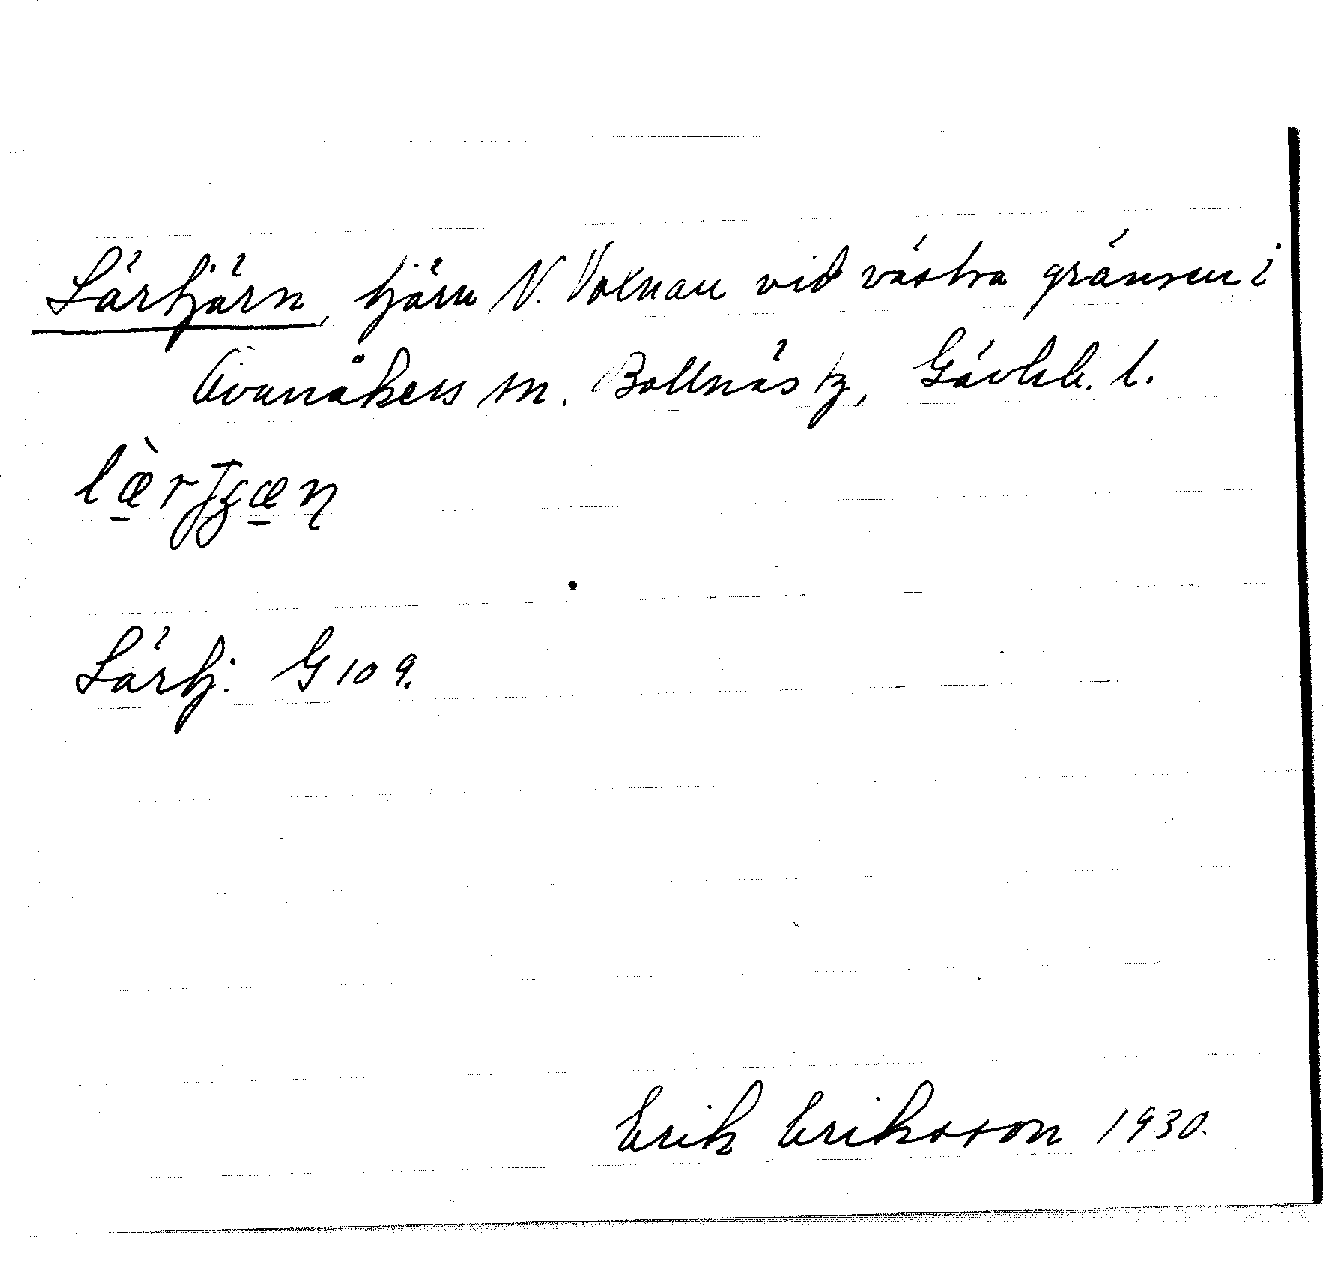 Lärtjärn, tjärn N. Voxnan vid västra gränsen i
Ovanåkers sn. Bollnäs tg, Gävleb. l.
lær
Lärtj. G 109.
Erik Eriksson 1930.